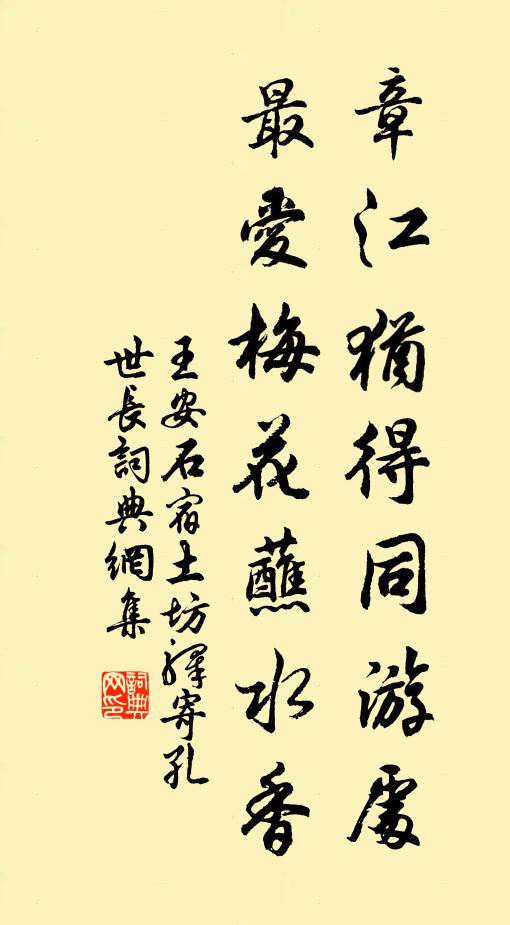 章江猶得同游處
最愛梅花蘸水香
王安石宿土坊驛寄孔
世長詞典網集
詞典
网印